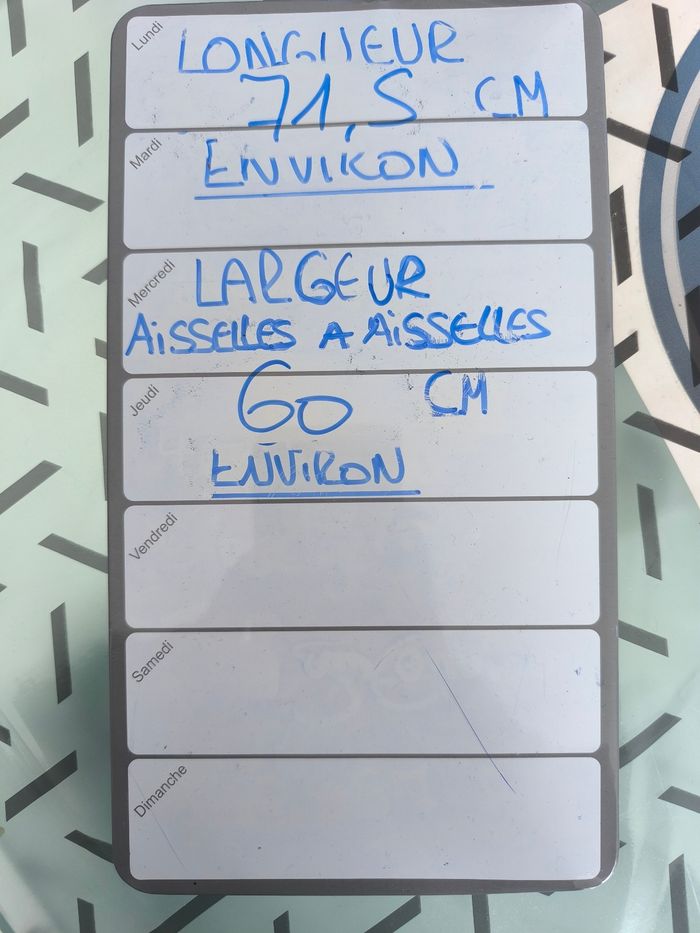 Lundi
LONGUEUR
71,5 CM
Mardi
ENVIRON
Mercredi
LARGEUR
AiSSELLES A AiSSELLES
Jeudi
60 CM
ENVIRON
Vendredi
Samedi
Dimanche